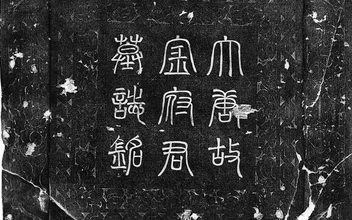 大唐故
金府君
墓誌銘